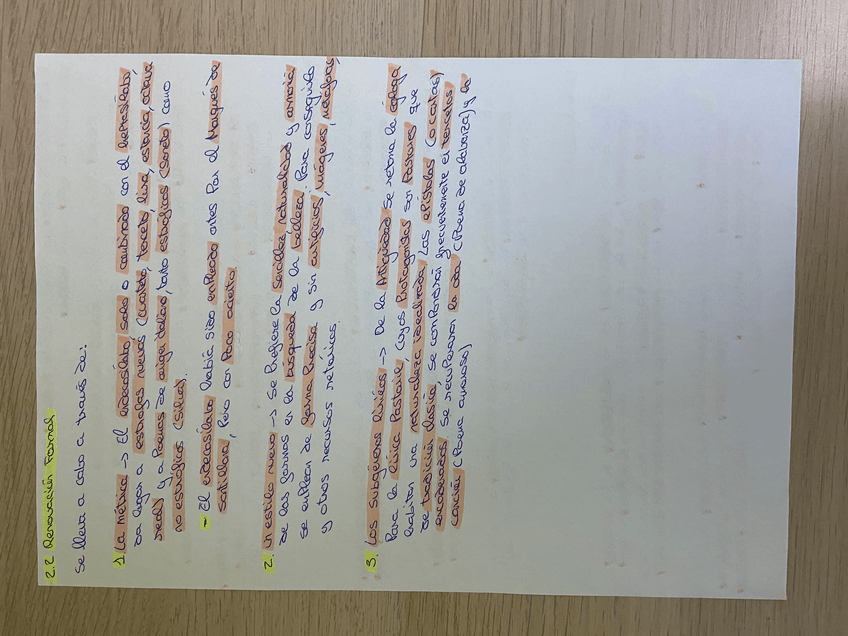 2.2 Renovación Formal
Se lleva a cabo a través de:
1. La métrica -> El endecasílabo, solo o combinado con el heptasílabo,
da lugar a estrofas nuevas (cuarteto, terceto, lira, estancia, octava
real) y a Poemas de origen italiano, tanto estróficos (Soneto) como
no estróficos (silva).
- El endecasílabo había sido empleado antes por el Marqués de
Santillana, Pero con Poco acierto.
2. Un estilo nuevo -> Se Prefiere la sencillez, naturalidad y armonía
de las formas en la búsqueda de la belleza. Para conseguirlo
se emplean de forma Precisa y sin artificios, imágenes, metáforas,
y otros recursos retóricos.
3. Los subgéneros líricos -> De la Antigüedad se retoma la égloga
Para la lírica Pastoril, cuyos Protagonistas son Pastores que
habitan una naturaleza idealizada. Las epístolas (o cartas)
de tradición clásica, se compondrán frecuentemente en tercetos
encadenados. Se recuperaron la oda (Poema de alabanza) y la
canción (Poema amoroso)